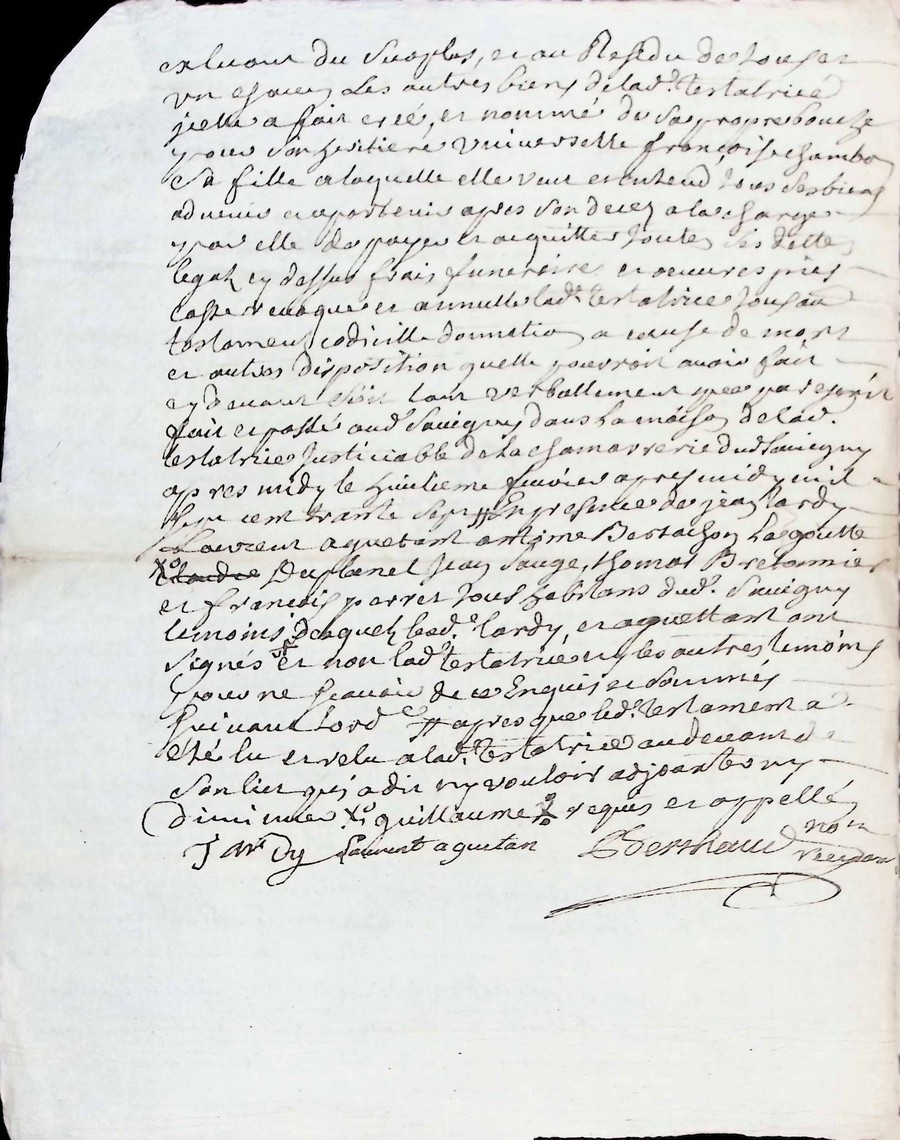 exluant du suoplos, et au Residu de tous et
un chacun Les autres biens de lad.e testatrice
icelle a fait creé, et nommé de sa propre bouche
pour son heritiere universelle françoise chambo
sa fille a laquelle elle veut et entend tous ses biens
advenir et apartenir apres son decez a la charge
par elle de payer et acquitter toutes ses dette
legatz cy dessus frais funeraire et oeuvres pies
casse revoque et annulle lad.e testatrice tous au
testament codicille donnation a cause de mort
et autres disposition quelle pourroit avoir fait
cy devant soit tant verballement que par escrit
fait et passé aud. Sauvigny dans La maison de lad.
testatrice Justiciable de La chamarerie dud Sauvigny
apres midy le huitieme fevrier apres midy mil
sept cent trante sept // En presence de jean tardy
Laurent aguetant antoine Berthachon Lagoutte
Xo claudee Duplanel Jean Sauge, thomas Bretonnier
et françois parret tous habitans dud. Sauvigny
temoins Desquelz led. tardy, et aguettant ont
signés et non lad.e testatrice ny les autres temoins
pour ne sçavoir de ce Enquis et sommés
suivant Lord.ce // apres que led. testament a
été lu et relu a lad.e testatrice au devant de
son lict qui a dit ny vouloir adjouster ny
diminuer Xo guillaume Xo requis et appellé
J tardy Laurent aguetan Berthaud no.re